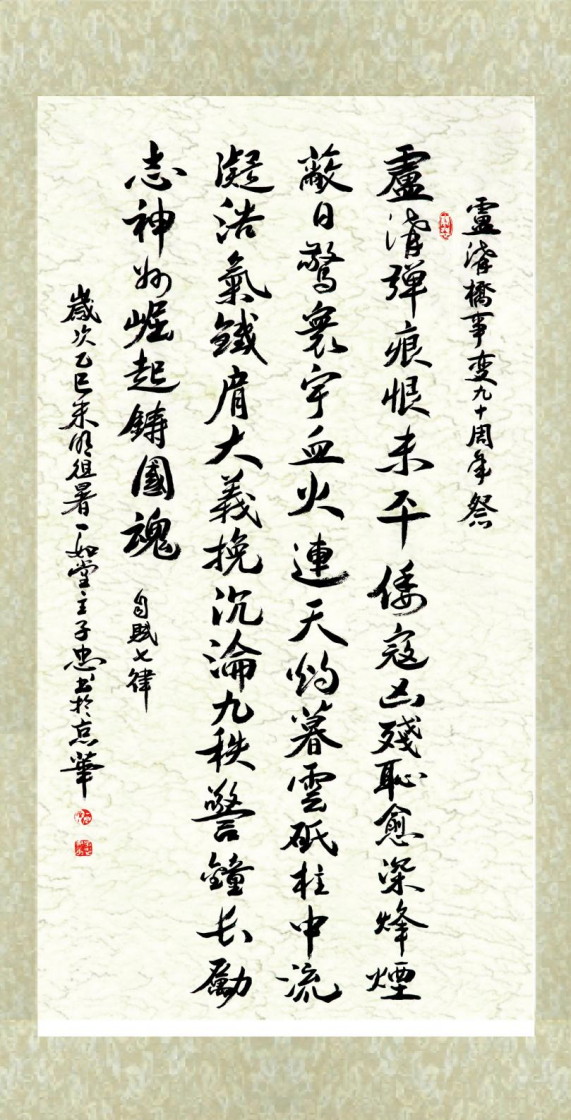 盧溝橋事变九十周年祭
盧溝弹痕恨未平倭寇凶殘恥愈深烽煙
蔽日驚寰宇血火連天灼暮雲砥柱中流
凝浩氣鐵肩大義挽沉淪九秩警鐘长勵
志神州崛起鑄國魂
自賦七律
歲次乙巳末明徂暑一如堂主子忠书於京華